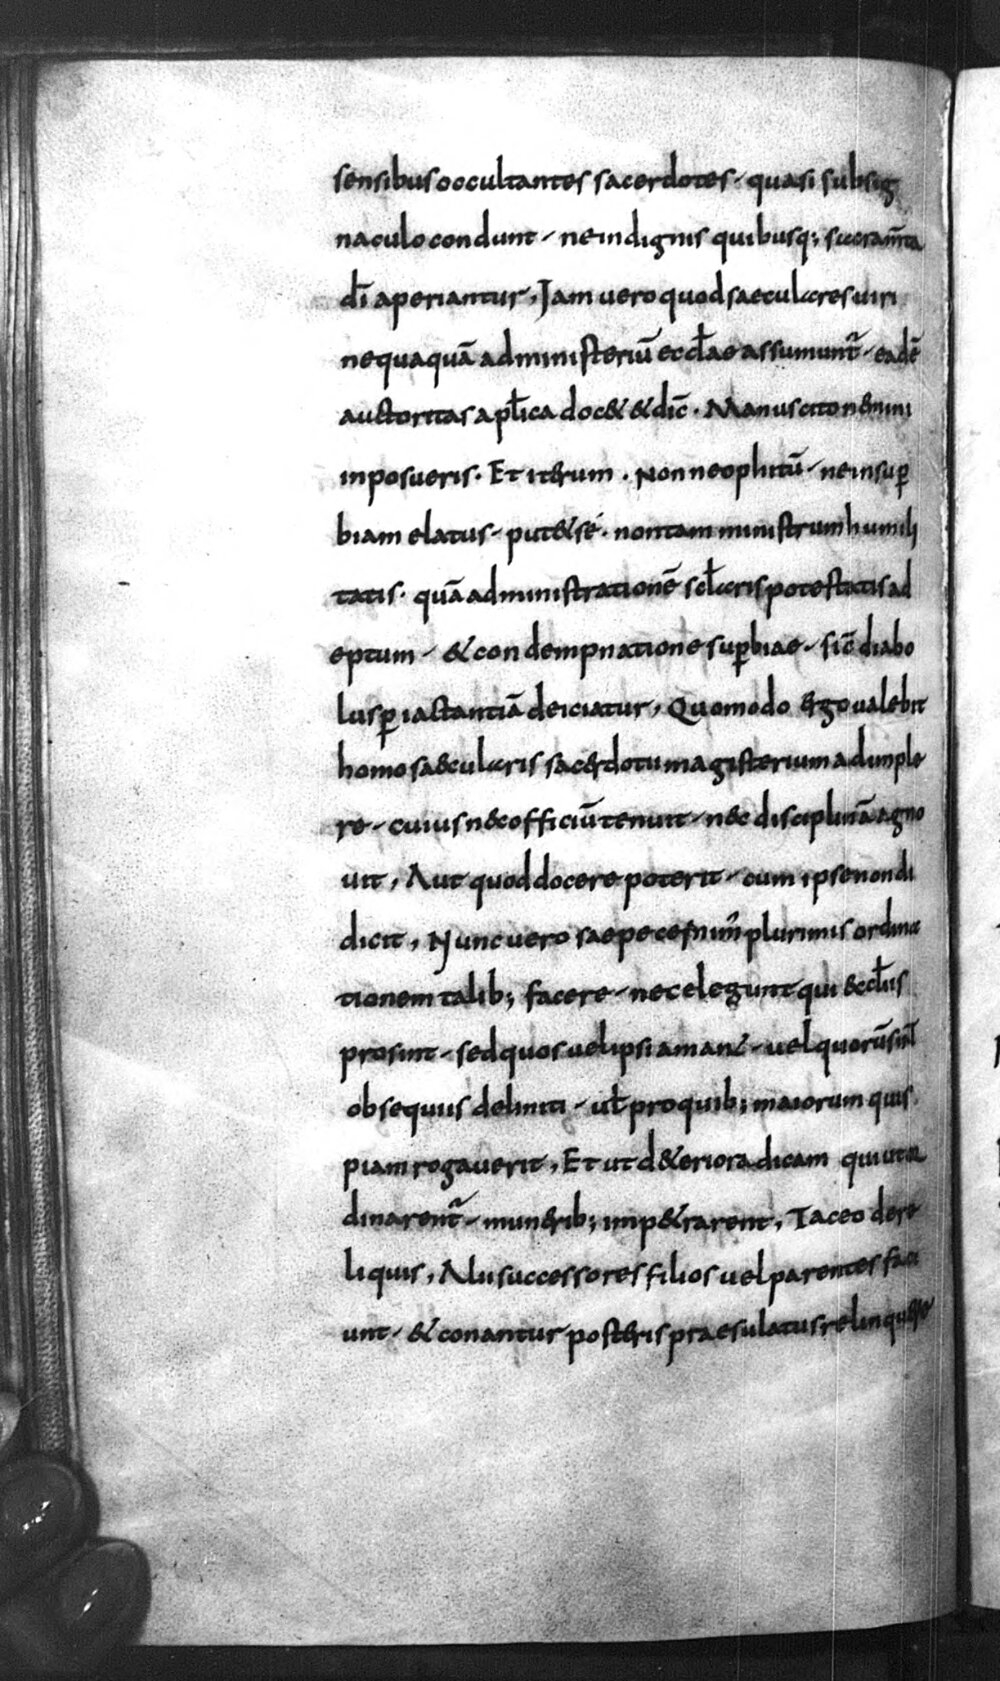 sensibus occultantes sacerdotes - quasi subsig
naculo condunt - ne indignis quibusq; sacram̄ta
dī aperiantur, Jam uero quod saeculares uiri
nequaquā ad ministeriū eccl̄ae assumunt̃ - eadē
auctoritas apl̄ica doc& & dic̄. Manus cito n&mini
inposueris. Et it&rum. Non neophitū - ne in sup̱
biam elatus - put& sé. non tam ministrum humili
tatis. quā administrationē scl̄aris potestatis ad
eptum - & condempnatione sup̱biae - sic̄ diabo
lus p̱ iactantiā deiciatur, Quomodo &rgo ualebit
homo sa&cularis sac&rdotu magisterium adimple
re - cuius n&c officiū tenuit - n&c disciplinā agno
uit, Aut quod docere poterit - cum ipse non di
dicit, Nunc uero saepe cernim᷒ plurimis ordina
tionem talib; facere - nec elegunt qui &ccl̄iis
prosint - sed quos uel ipsi amant - uel quorū sunt
obsequiis deliniti - ul̄ pro quib; maiorum quis
piam rogauerit, Et ut d&eriora dicam qui ut or
dinarent̃ - mun&rib; inp&rarent, Taceo dere
liquis, Alii successores filios uel parentes faci
unt - & conantur post&ris praesulatus relinqu&re